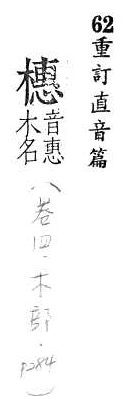 62重訂直音篇
橞音惠木名
(卷四·木部·P284)